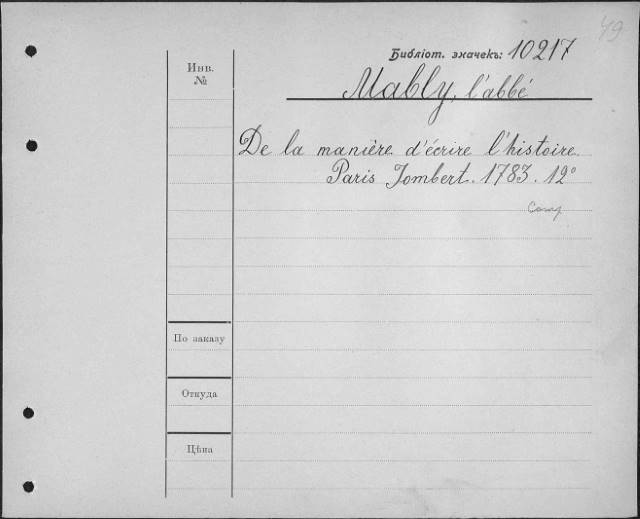 49
Библіот. значекъ: 10217
Инв.
№
Mably, l'abbé
De la manière d'écrire l'histoire.
Paris Jombert. 1783. 12°
По заказу
Откуда
Цѣна